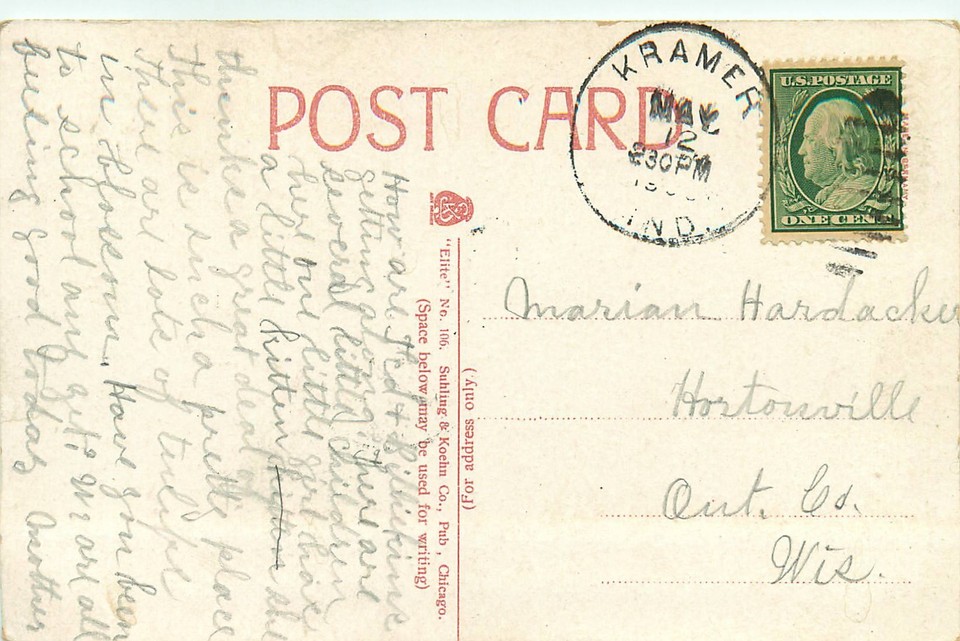 POST CARD
KRAMER
MAY
12
230PM
IND.
U.S. POSTAGE
ONE CENT
Marian Hardacker
Hortonville
Out. Co.
Wis.
(For address only.)
"Elite" No. 106. Suhling & Koehn Co., Pub, Chicago.
(Space below may be used for writing)
How are Ted &
getting along There are
several little children
here one little girl have
a little kitten she
thinks a great deal of
This is such a pretty place
There are lots of
in blossom. Have you been
to school any yet? We are all
feeling good today Mother